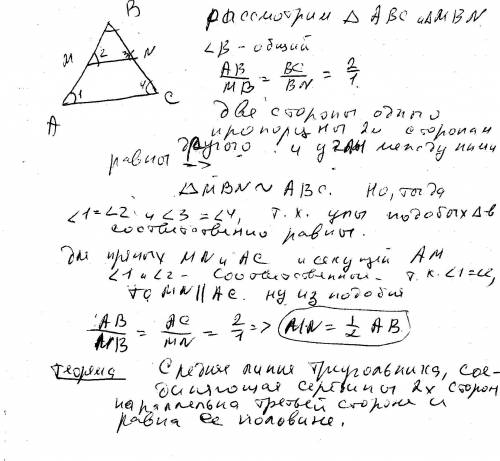 B
Рассмотрим △ ABC и △MBN.
∠B - общий
M 2 3 N
AB/MB = BC/BN = 2/1
1 4
A C
две стороны одного
пропорцны 2м сторонам
другого и углы между ними
равны =>
△MBN ~ ABC. Но, тогда
∠1=∠2 и ∠3=∠4, т.к. углы подобых △в
соответственно равны.
для прямых MN и AC и секущей AM
∠1 и ∠2 - соответственный. т.к. ∠1=∠2,
то MN || AC. ну из подобия
AB/MB = AC/MN = 2/1 => MN = 1/2 AB
Теорема Средняя линия триугольника, сое-
диняющая середины 2х сторон
параллельна третьей стороне и
равна её половине.